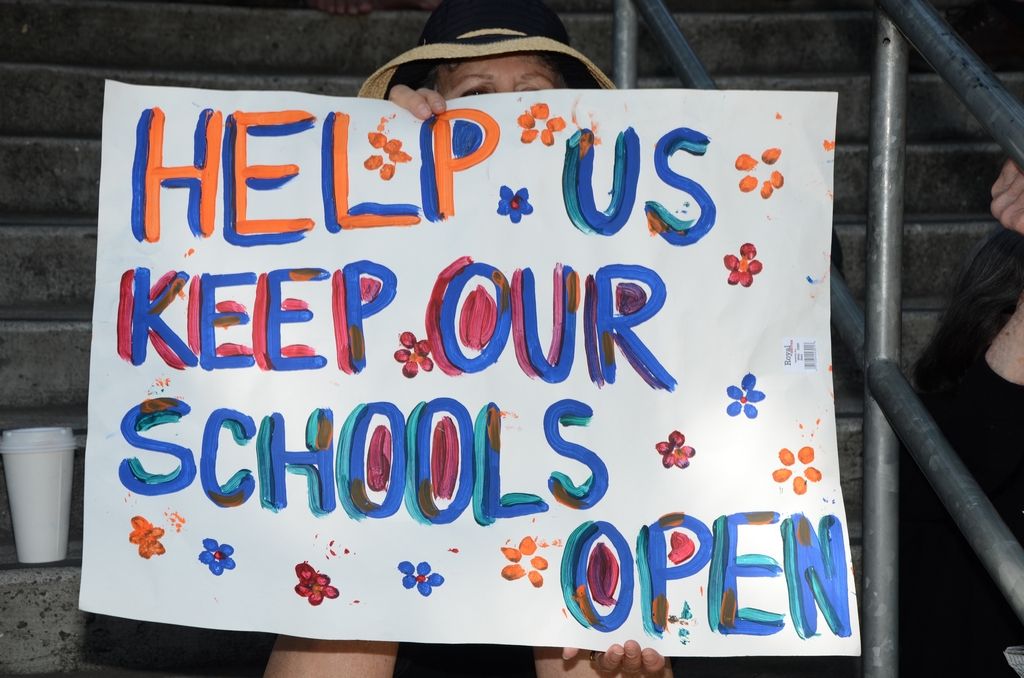 HELP US
KEEP OUR
Royal
SCHOOLS
OPEN